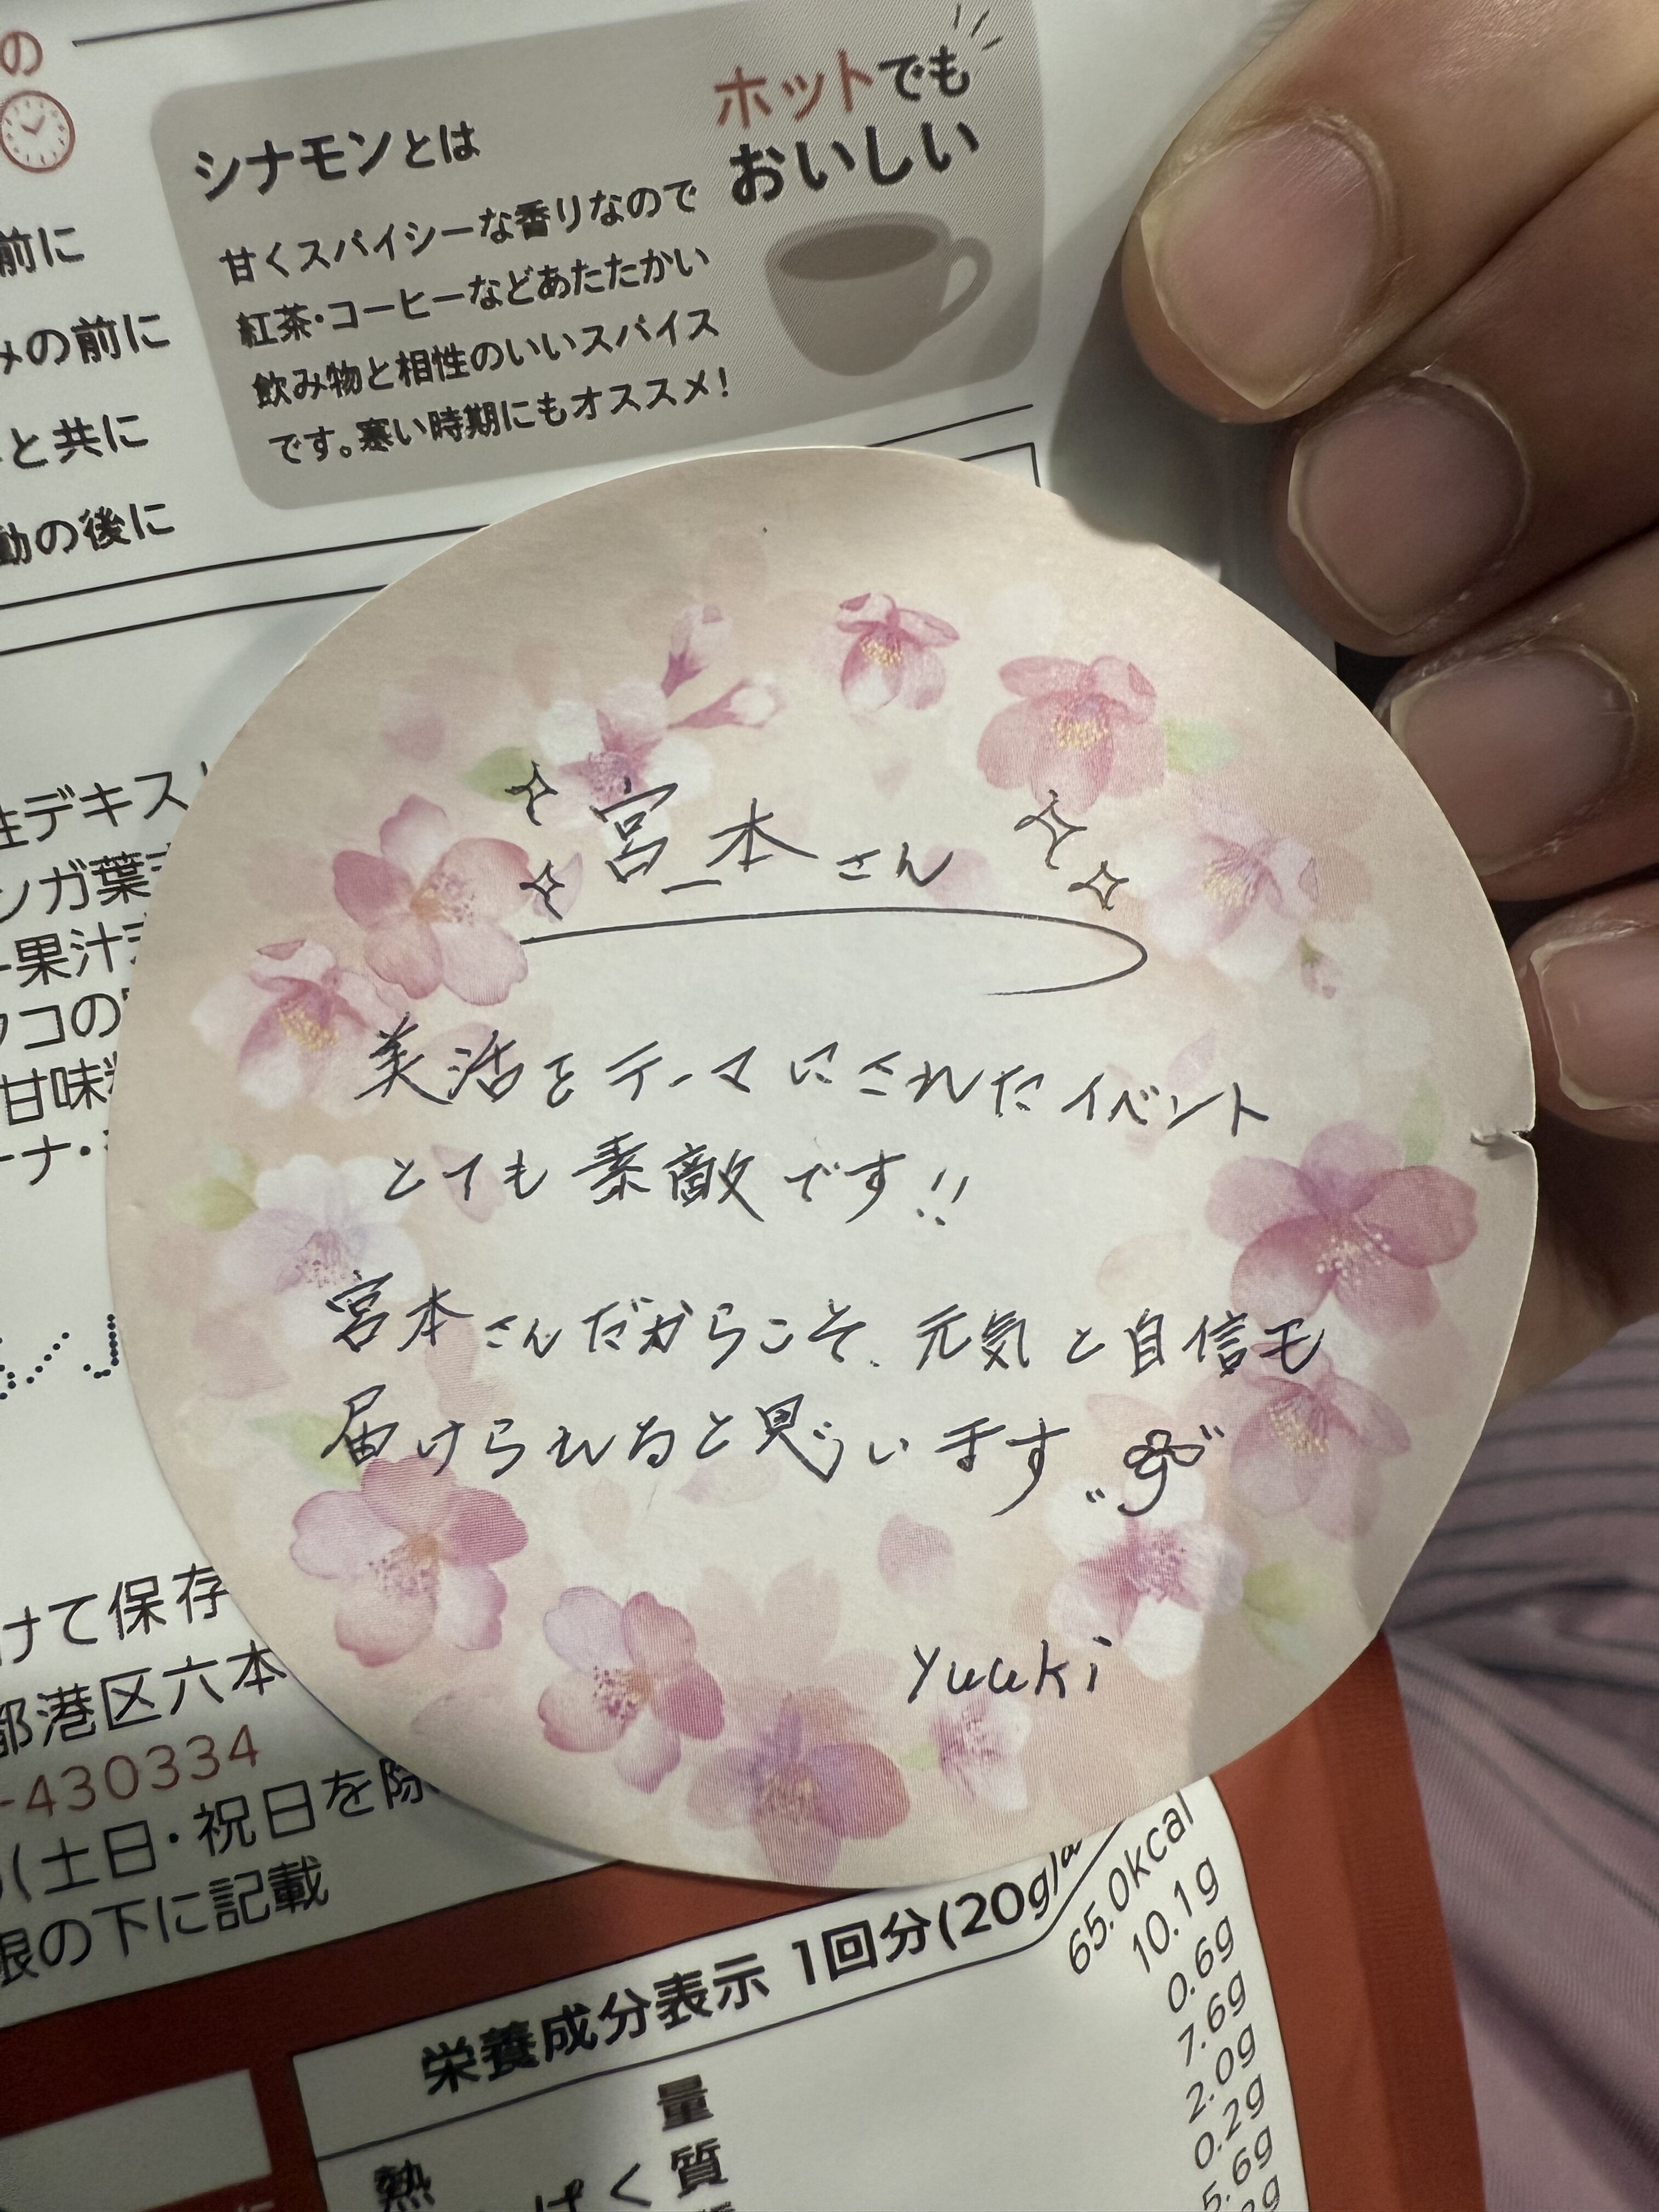 の
前に
の前に
と共に
動の後に
シナモンとは
甘くスパイシーな香りなので
紅茶・コーヒーなどあたたかい
飲み物と相性のいいスパイス
です。寒い時期にもオススメ!
ホットでも
おいしい
性デキス
ンガ葉
果汁
コの
甘味
ーナ・
宮本さん
美活をテーマにされたイベント
とても素敵です!!
宮本さんだからこそ、元気と自信も
届けられると思います
Yuuki
けて保存
都港区六本
-430334
(土日・祝日を除
限の下に記載
栄養成分表示 1回分(20g)
65.0kcal
10.1g
0.6g
7.6g
2.0g
0.2g
5.6g
熱
量
ぱく質